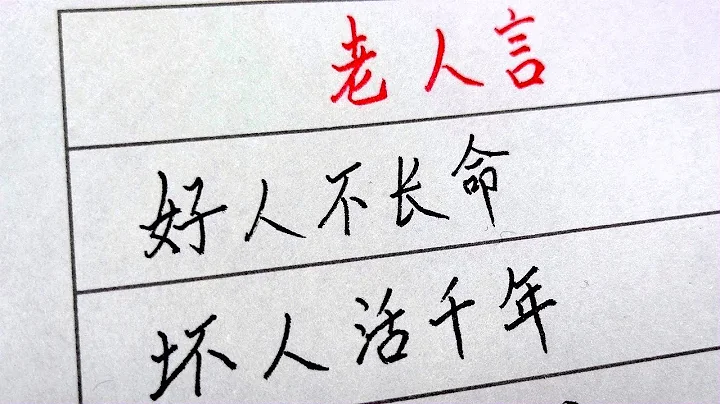 老人言
好人不长命
坏人活千年